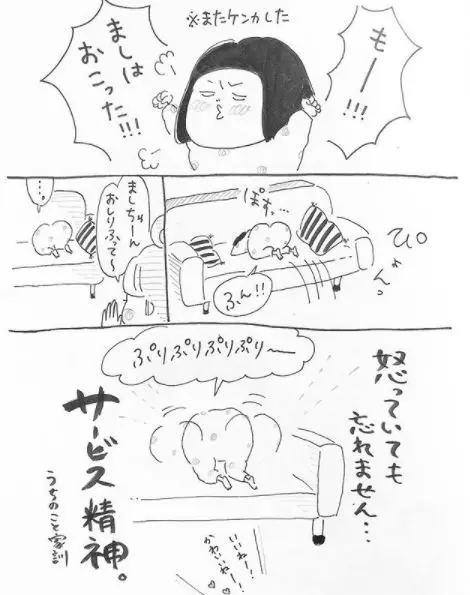 ※またケンカした
もーー!!!
ましは
おこった!!!
ぴょんっ
ぽすっ…
ふん!!
ましちゃーん
おしりふって〜
…。
ぷりぷりぷりぷりー
怒っていても
忘れません…
サービス精神。
うちのこと家訓
いいねー!
かわいいねー!!